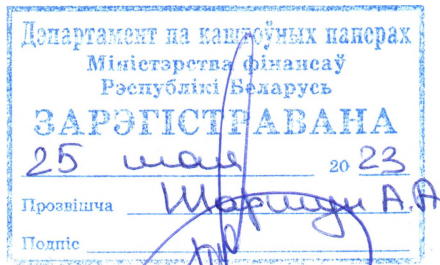 Дэпартамент па каштоўных паперах
Міністэрства фінансаў
Рэспублікі Беларусь
ЗАРЭГІСТРАВАНА
25 мая 2023
Прозвішча А.А
Подпіс